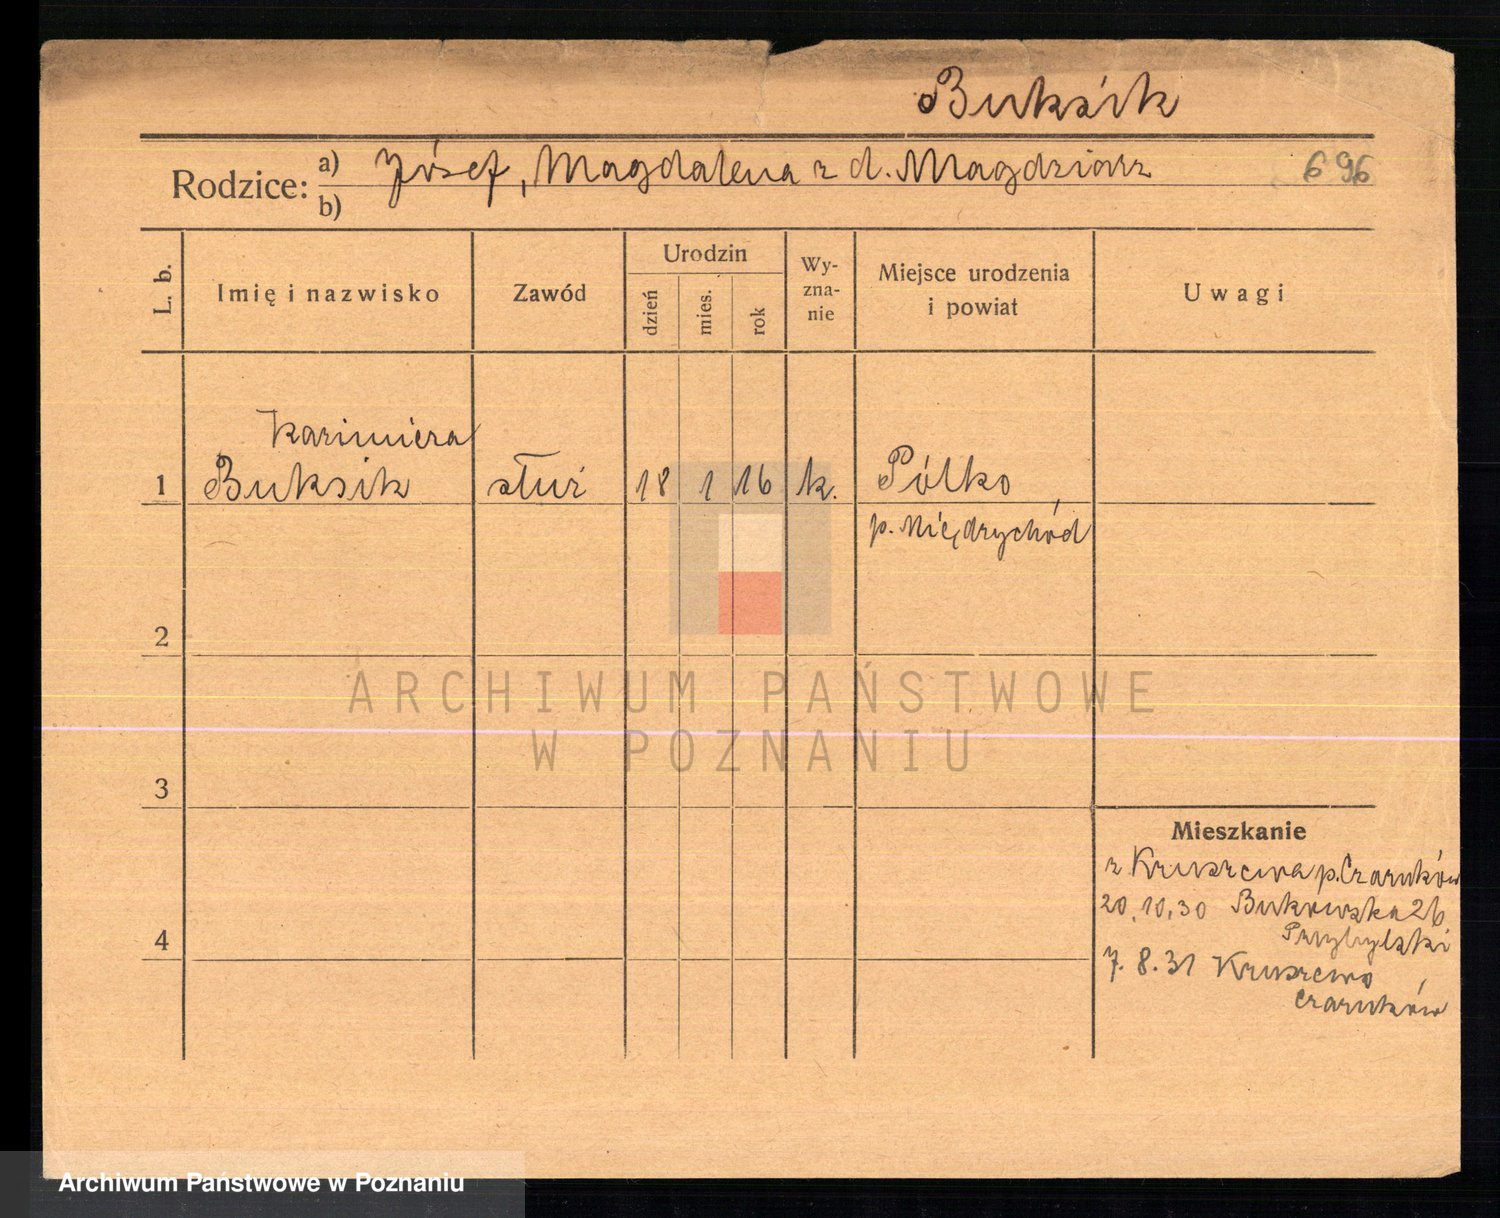 Buksik
Rodzice: a) Józef, Magdalena z d. Magdziarz
b)
696
L. b.
Imię i nazwisko
Zawód
Urodzin
dzień
mies.
rok
Wy-
zna-
nie
Miejsce urodzenia
i powiat
Uwagi
Kazimiera
1 Buksik służ 18 1 16 k. Pólko
p. Międzychód
2
3
4
Mieszkanie
z Kruszewa p. Czarnków
20.10.30 Bukowska 26
Przybylski
7.8.31 Kruszewo
Czarnków
ARCHIWUM PAŃSTWOWE
W POZNANIU
Archiwum Państwowe w Poznaniu